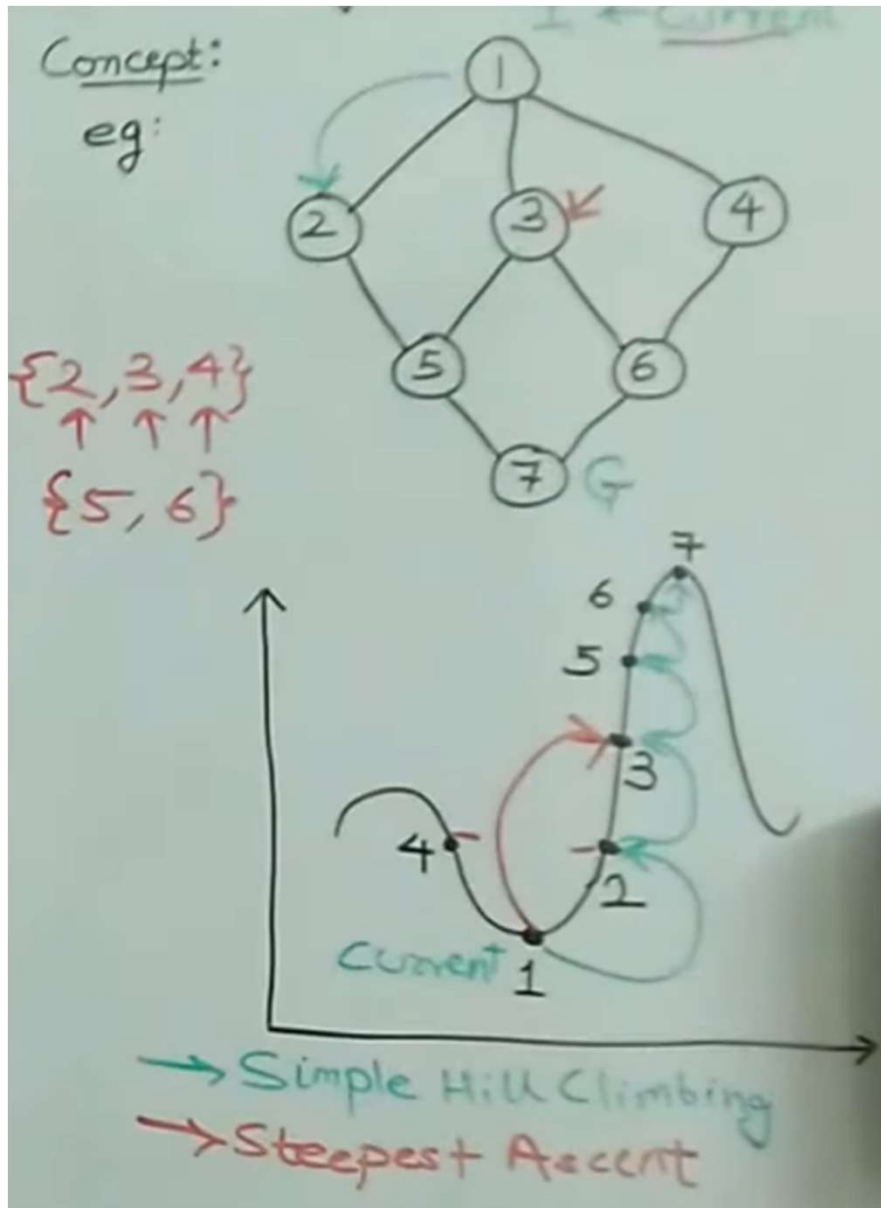 I ← Current
Concept:
eg:
1
2 3 4
{2,3,4}
↑ ↑ ↑
5 6
{5, 6}
7 G
7
6
5
3
4
2
Current
1
→ Simple Hill Climbing
→ Steepest Ascent